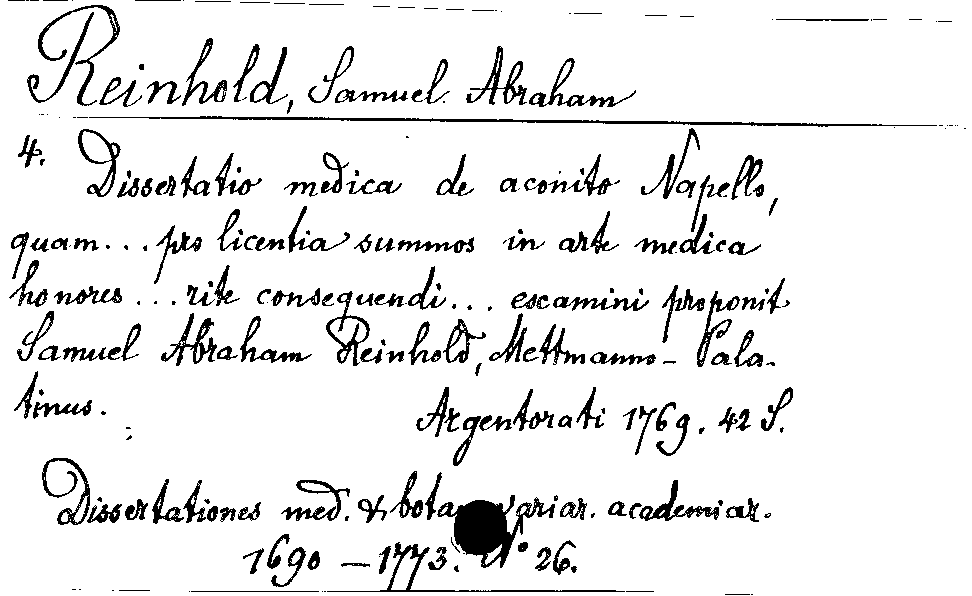 Reinhold, Samuel Abraham
4. Dissertatio medica de aconito Napello,
quam... pro licentia summos in arte medica
honores ... rite consequendi... examini proponit
Samuel Abraham Reinhold, Mettmanno-Pala-
tinus.
Argentorati 1769. 42 S.
Dissertationes med. & botan. variar. academicar.
1690 - 1773. No 26.